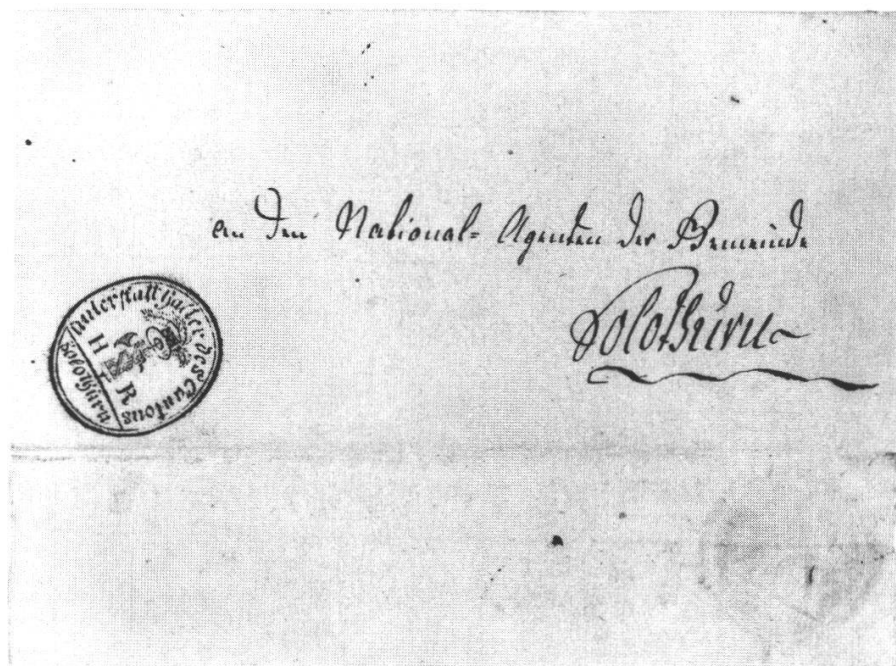 an den National= Agenten der Gemeinde
Solothurn
Unterstatthalter des Cantons
H R
Solothurn